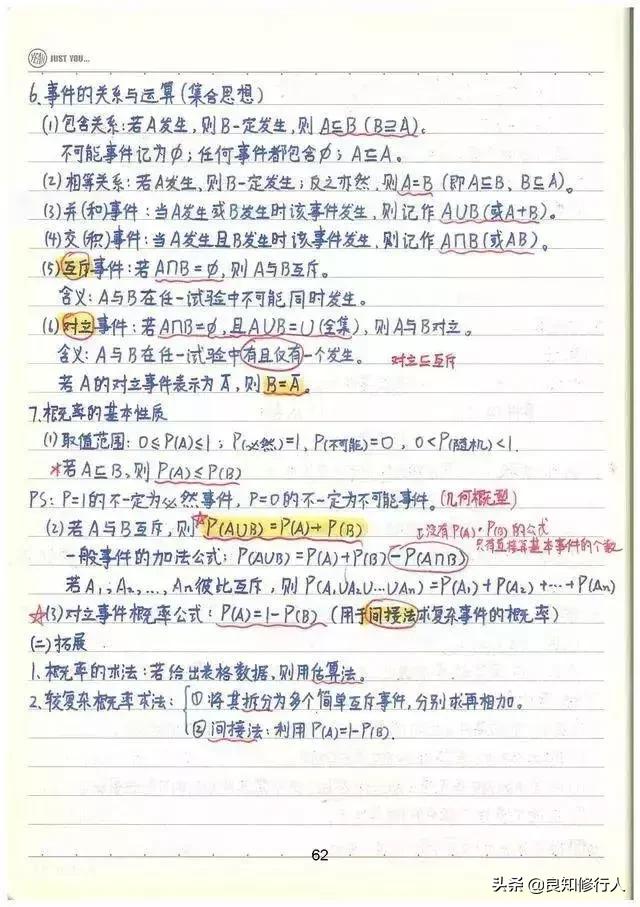 YEAH JUST YOU...
6.事件的关系与运算(集合思想)
(1)包含关系:若A发生,则B一定发生,则A⊆B(B⊇A)。
不可能事件记为∅;任何事件都包含∅;A⊆A。
(2)相等关系:若A发生,则B一定发生;反之亦然,则A=B(即A⊆B、B⊆A)。
(3)并(和)事件:当A发生或B发生时该事件发生,则记作A∪B(或A+B)。
(4)交(积)事件:当A发生且B发生时该事件发生,则记作A∩B(或AB)。
(5)互斥事件:若A∩B=∅,则A与B互斥。
含义:A与B在任一试验中不可能同时发生。
(6)对立事件:若A∩B=∅,且A∪B=U(全集),则A与B对立。
含义:A与B在任一试验中有且仅有一个发生。 对立⊆互斥
若A的对立事件表示为Ā,则B=Ā。
7.概率的基本性质
(1)取值范围:0≤P(A)≤1;P(必然)=1,P(不可能)=0,0<P(随机)<1.
*若A⊆B,则P(A)≤P(B)
PS:P=1的不一定为必然事件,P=0的不一定为不可能事件。(几何概型)
(2)若A与B互斥,则☆P(A∪B)=P(A)+P(B) 没有P(A)·P(B)的公式
只有直接算基本事件的个数
一般事件的加法公式:P(A∪B)=P(A)+P(B)-P(A∩B)
若A₁,A₂,...,Aₙ彼此互斥,则P(A₁∪A₂∪…∪Aₙ)=P(A₁)+P(A₂)+…+P(Aₙ)
☆(3)对立事件概率公式:P(A)=1-P(B)(用于间接法求复杂事件的概率)
(二)拓展
1.概率的求法:若给出表格数据,则用估算法。
2.较复杂概率求法:{①将其拆分为多个简单互斥事件,分别求再相加。
②间接法:利用P(A)=1-P(B).
62
头条@良知修行人